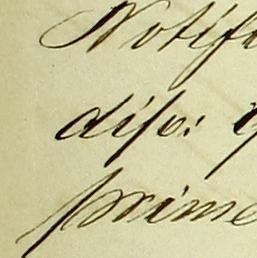 Notif
diſo:
prime